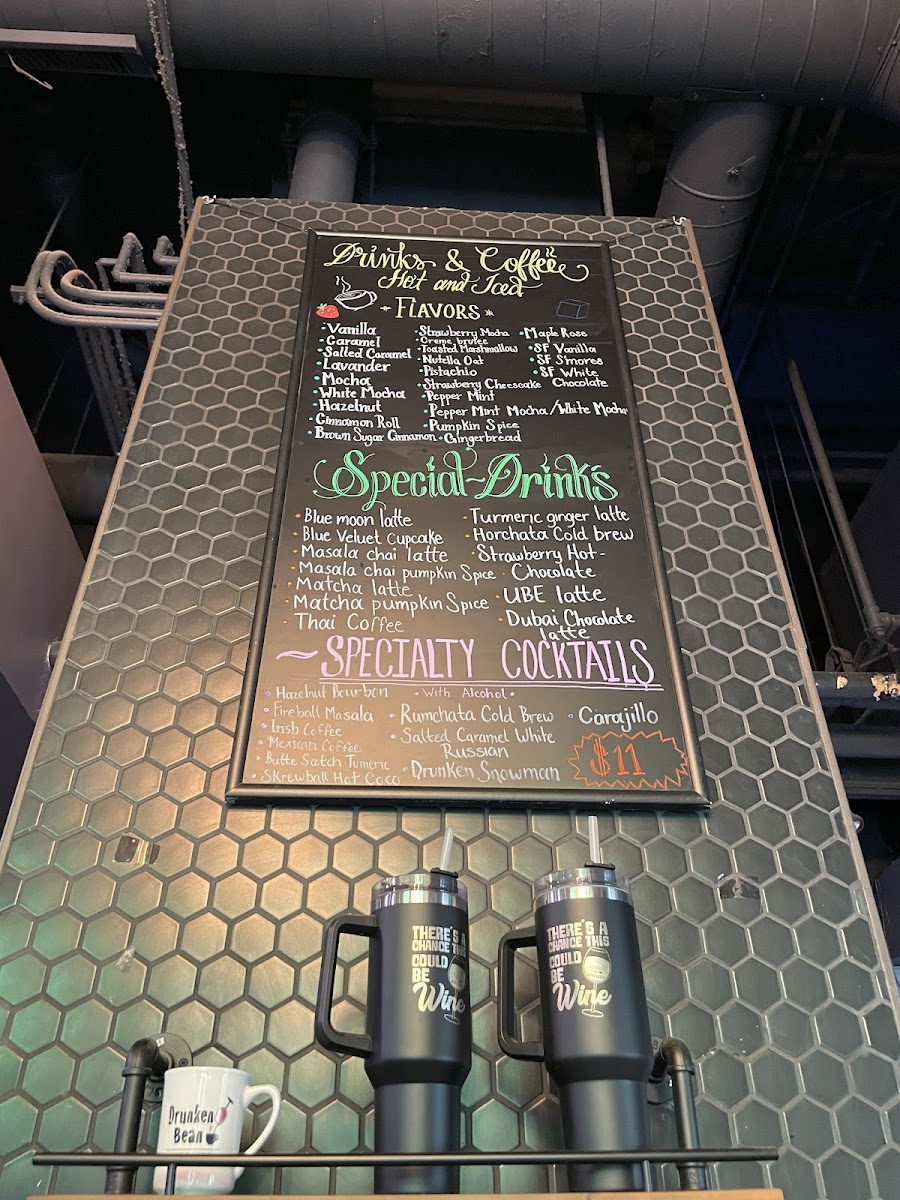 Drinks & Coffee
Hot and Iced
FLAVORS
Vanilla
Caramel
Salted Caramel
Lavander
Mocha
White Mocha
Hazelnut
Cinnamon Roll
Brown Sugar Cinnamon
Strawberry Mocha
Creme brulee
Toasted Marshmallow
Nutella Oat
Pistachio
Strawberry Cheescake
Pepper Mint
Pepper Mint Mocha/White Mocha
Pumpkin Spice
Gingerbread
Maple Rose
SF Vanilla
SF S'mores
SF White
Chocolate
Special-Drinks
Blue moon latte
Blue Velvet Cupcake
Masala chai latte
Masala chai pumpkin Spice
Matcha latte
Matcha pumpkin Spice
Thai Coffee
Turmeric ginger latte
Horchata Cold brew
Strawberry Hot-
Chocolate
UBE latte
Dubai Chocolate
latte
~SPECIALTY COCKTAILS
With Alcohol
Hazelnut Bourbon
Fireball Masala
Irish Coffee
Mexican Coffee
Butte Scotch Tumeric
Skrewball Hot Coco
Rumchata Cold Brew
Salted Caramel White
Russian
Drunken Snowman
Carajillo
$11
THERE'S A
CHANCE THIS
COULD
BE
Wine
THERE'S A
CHANCE THIS
COULD
BE
Wine
Drunken
Bean